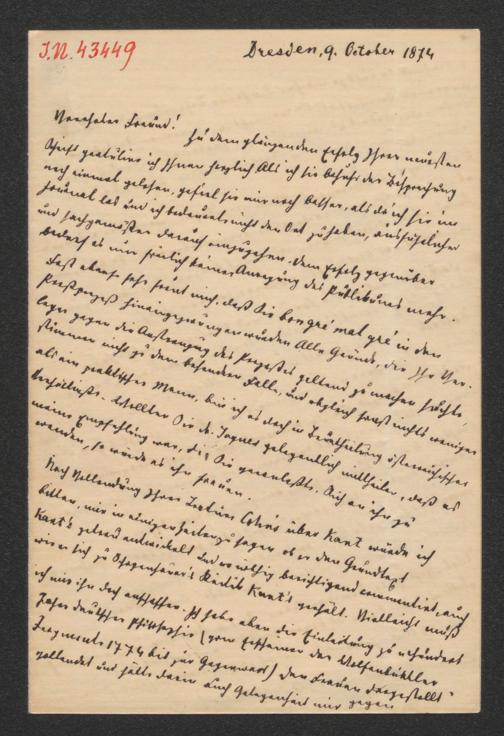 I.N. 43449
Dresden, 9. October 1874
Verehrter Freund!
Zu dem glänzenden Erfolg Ihrer neuesten
Schrift gratulire ich Ihnen herzlich. Als ich sie behufs der Besprechung
noch einmal gelesen, gefiel sie mir noch besser, als da ich sie im
Journal las und ich bedauerte nicht den Ort zu haben, ausführlicher
und sachgemäßer darauf einzugehen. Dem Erfolg gegenüber
bedarf es nun freilich keiner Anregung des Publikums mehr.
Fast ebenso sehr freut mich, daß Sie bon gré mal gré in den
Preßprozeß hineingezwungen wurden. Alle Gründe, die Ihr Ver-
leger gegen die Anstrengung des Prozesses geltend zu machen suchte,
stimmen nicht zu dem besonderen Falle, und obgleich sonst nichts weniger
als ein praktischer Mann, bin ich es doch in Beurtheilung österreichischer
Verhältnisse. Wollten Sie Dr. Jaques gelegentlich mittheilen, daß es
meine Empfehlung war, die Sie veranlaßte, Sich an ihn zu
wenden, so würde es ihn freuen.
Nach Vollendung Ihrer Lectüre Cohen's über Kant würde ich
bitten, mir in einigen Zeilen zu sagen ob er den Grundtext
Kant's getreu entwickelt und wo nöthig berichtigend commentirt, auch
wie er sich zu Schopenhauer's Kritik Kant's verhält. Vielleicht muß
ich mir ihn doch anschaffen. Ich habe eben die Einleitung zu "Hundert
Jahre deutscher Philosophie (vom Erscheinen der Wolfenbüttler
Fragmente 1774 bis zur Gegenwart) den Frauen dargestellt"
vollendet und hätte darin auch Gelegenheit mir gegen